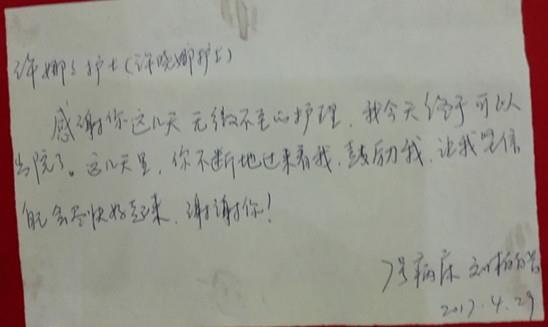 许娜娜护士(许晓娜护士)
感谢你这几天无微不至的护理,我今天终于可以
出院了。这几天里,你不断地过来看我,鼓励我,让我坚信
能会尽快好起来,谢谢你!
7号病床
2017.4.29